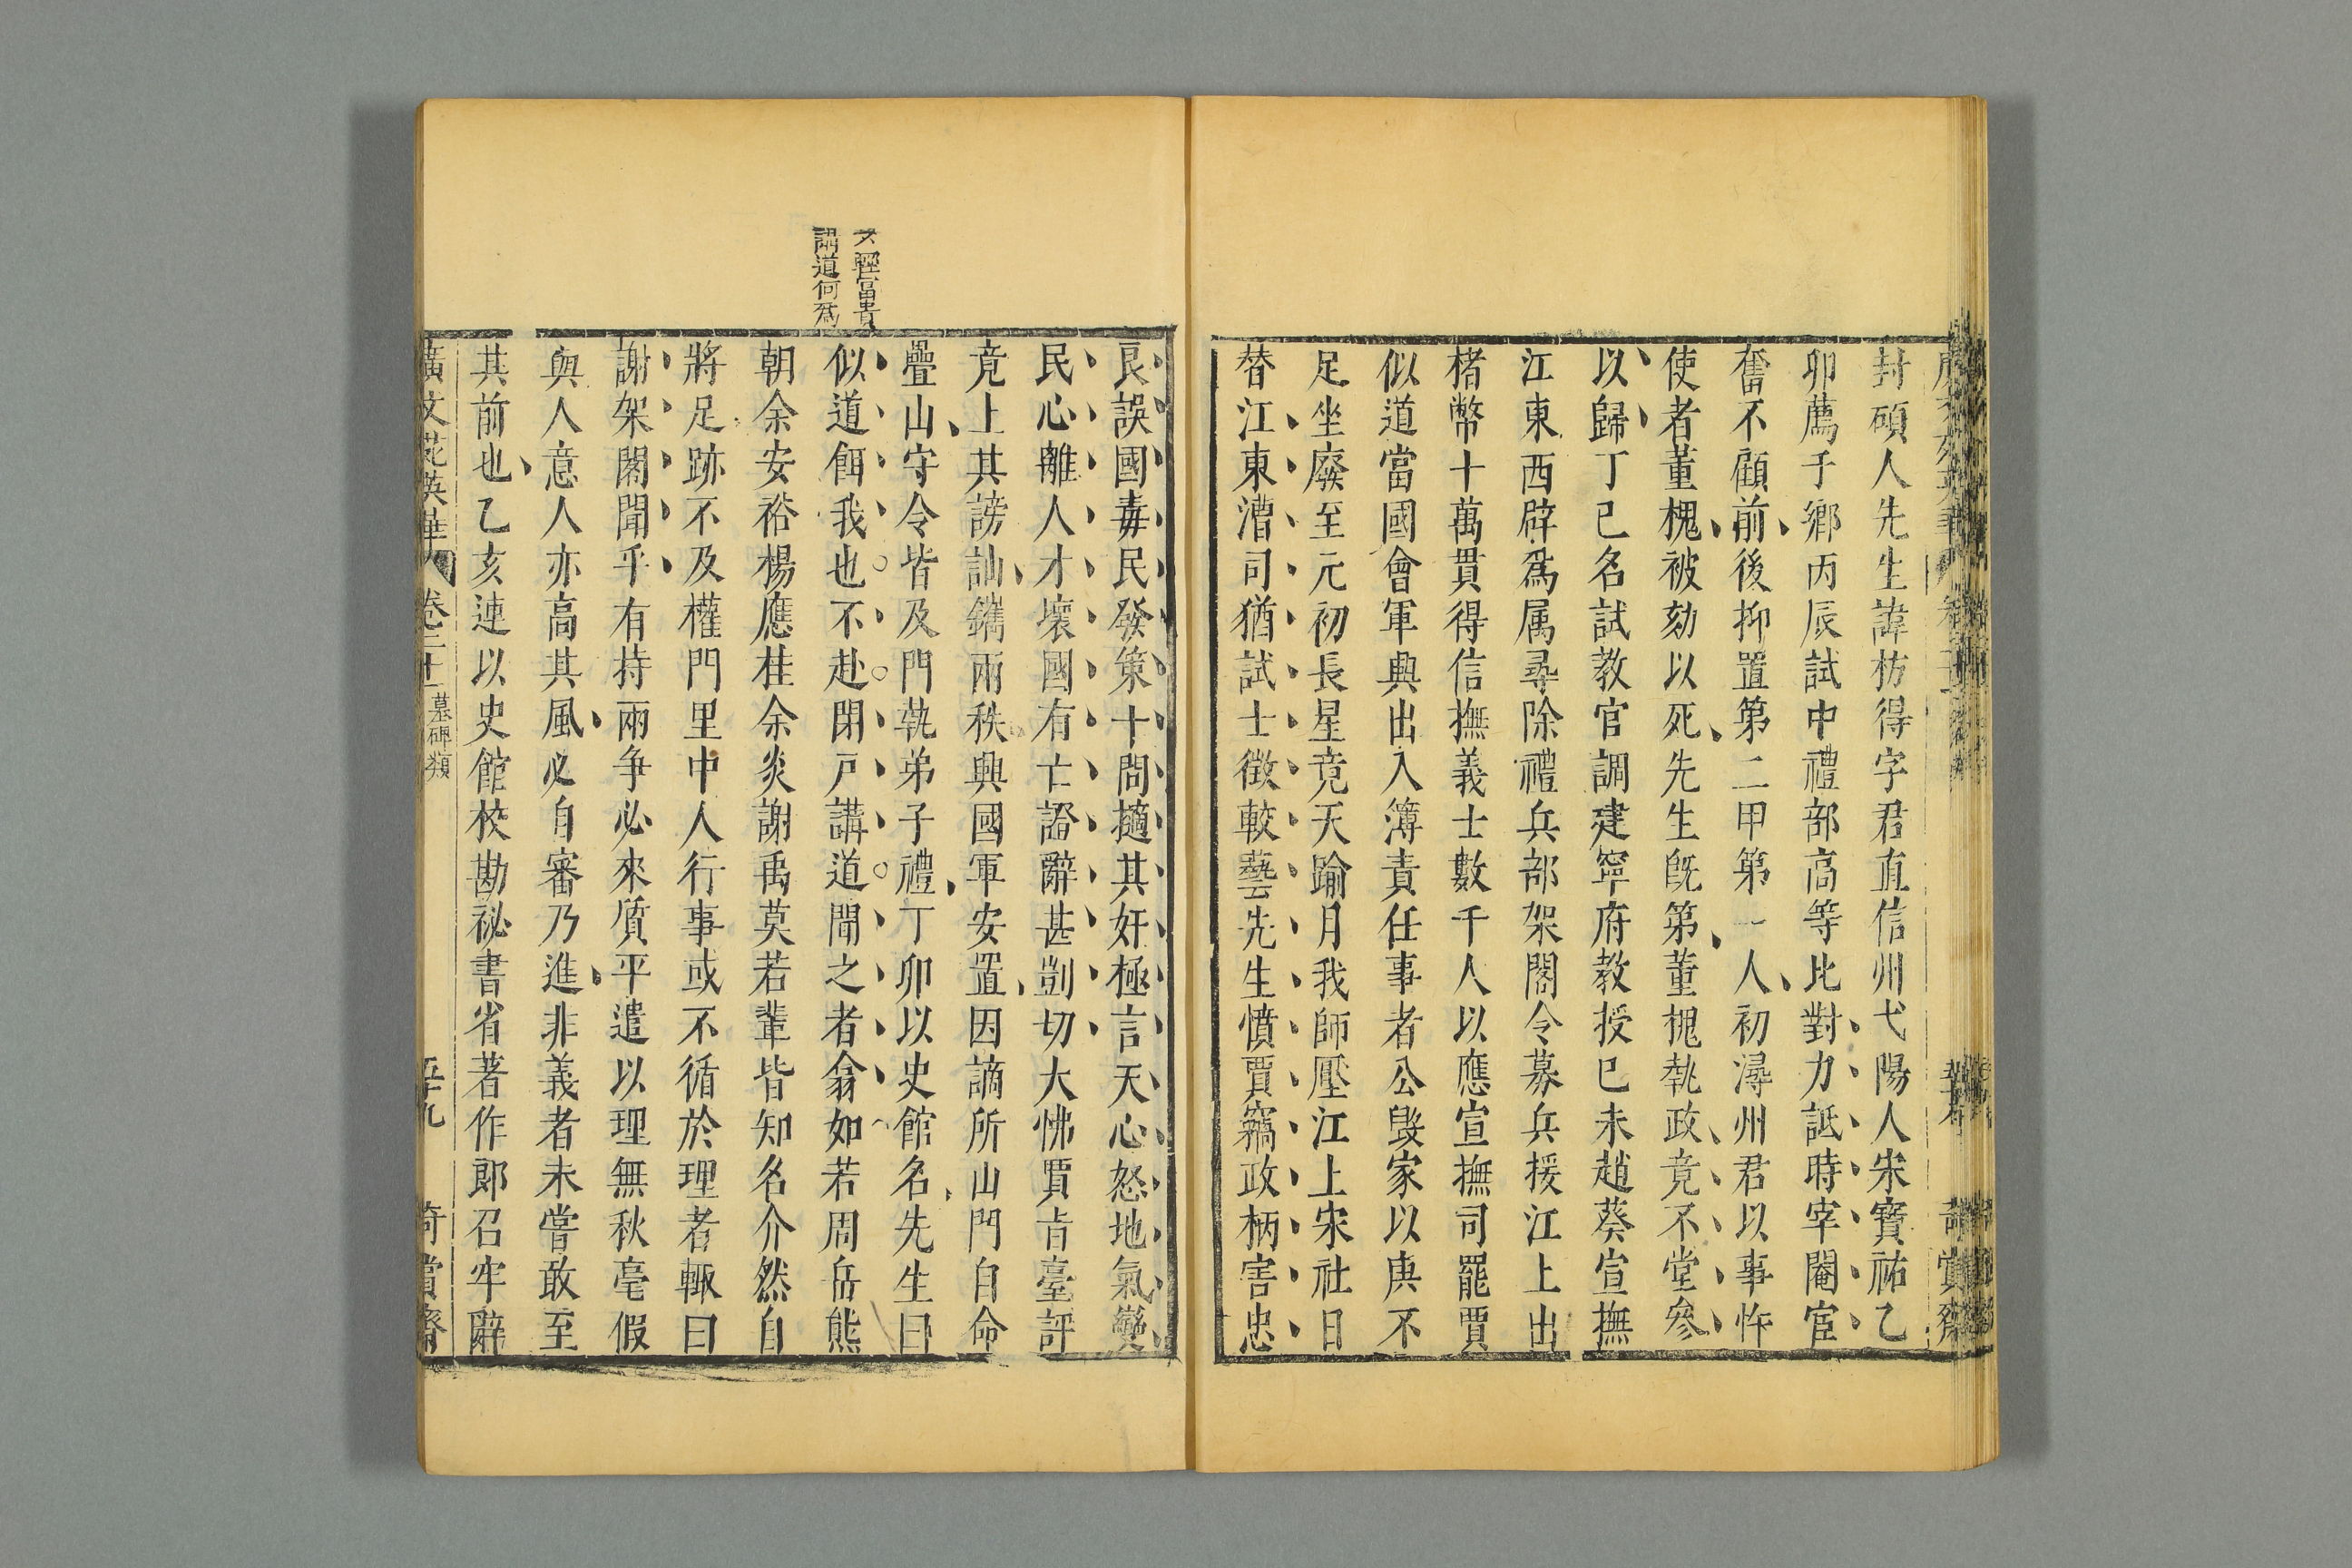 封碩人先生諱枋得字君直信州弋陽人宋寶祐乙
卯薦于鄉丙辰試中禮部高等比對力詆時宰閹宦
奮不顧前後抑置第二甲第一人初潯州君以事忤
使者董槐被劾以死先生旣第董槐執政竟不堂參
以歸丁巳名試教官調建寧府教授巳未趙葵宣撫
江東西辟爲属尋除禮兵部架閣令募兵援江上出
楮幣十萬貫得信撫義士數千人以應宣撫司罷賈
似道當國會軍興出入簿責任事者公毀家以庚不
足坐廢至元初長星竟天踰月我師壓江上宋社日
替江東漕司猶試士徵較藝先生憤賈竊政柄害忠
良誤國毒民發策十問擿其奸極言天心怒地氣變
民心離人才壞國有亡證辭甚剴切大怫賈肯臺評
竟上其謗訕鐫兩秩興國軍安置因謫所山門自命
疊山守令皆及門執弟子禮丁卯以史館名先生曰
似道餌我也不赴閉戸講道間之者翕如若周岳熊
朝余安裕楊應桂余炎謝禹莫若輩皆知名介然自
將足跡不及權門里中人行事或不循於理者輙曰
謝架閣聞乎有持兩爭必來質平遣以理無秋毫假
與人意人亦高其風必自審乃進非義者未嘗敢至
其前也乙亥連以史館校勘祕書省著作郎召牢辭
輕富貴
講道何爲
廣文苑英華 卷二十 墓碑類 五十九 奇賞齋